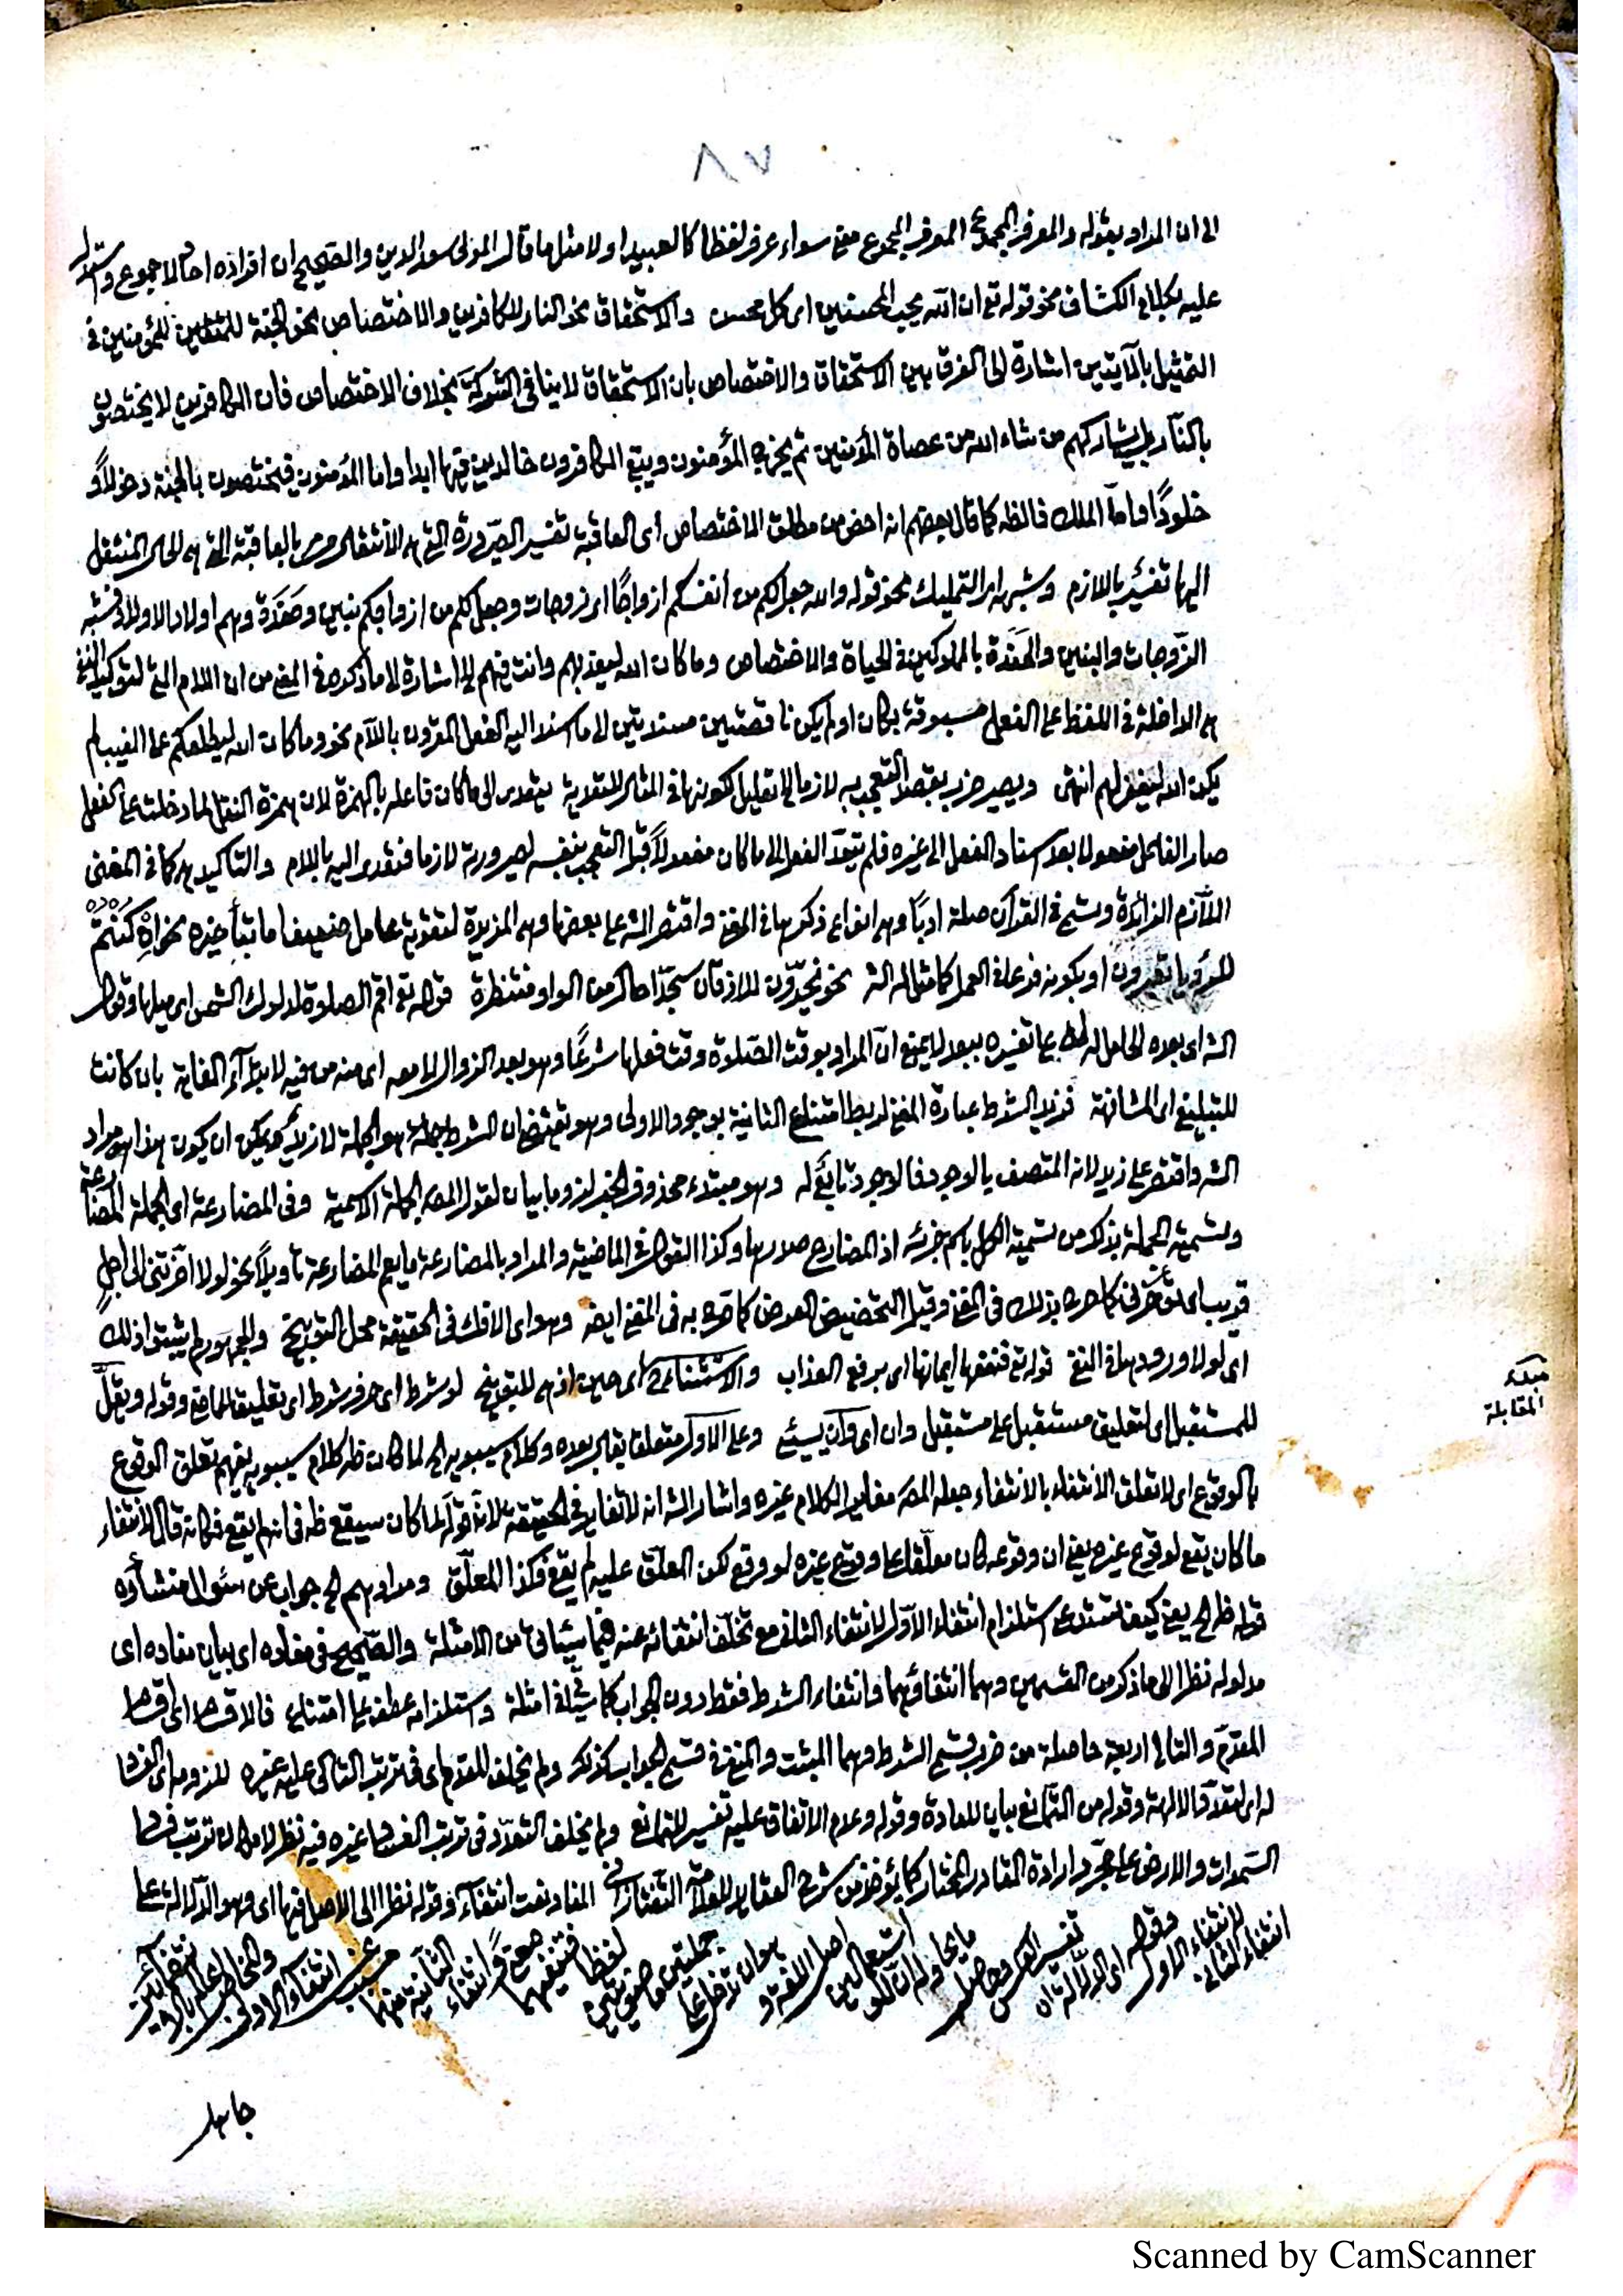 ٨٧
الى ان المراد بقوله والمعرف المجموع المعرف المجموع معنى سواء عرف لفظا كالعبيد او لا مثل ما قال المولى سعد الدين والصحيح ان افراده احاد لا جموع
عليه بكلام الكشاف نحو قوله تع ان الله يحب المحسنين اى كل محسن والاستحقاق نحو النار للكافرين والاختصاص نحو الجنة للمؤمنين فى
التمثيل بالآيتين اشارة الى الفرق بين الاستحقاق والاختصاص بان الاستحقاق لا ينافى الشركة بخلاف الاختصاص فان الكافرين لا يختصون
بالنار بل يشاركهم من شاء الله من عصاة المؤمنين ثم يخرج المؤمنون ويبقى الكافرون خالدين فيها ابدا واما المؤمنون فيختصون بالجنة دخولا و
خلودًا واما الملك فالظ كما قال بعضهم انه اخص من مطلق الاختصاص أى العاقبة تفسير الصيرورة التى هى الانتقال بالعاقبة التى هى الحال المنتقل
اليها تفسير باللازم وشبهه اى التمليك نحو قوله والله جعل لكم من أنفسكم ازواجًا اى زوجات وجعل لكم من ازواجكم بنين وحفدة وهم اولاد الاولاد فشبه
الزوجات والبنين والحفدة بالمملوكين فى الحياة والاختصاص وما كان الله ليعذبهم وانت فيهم اشارة لما ذكره فى المغنى من ان اللام التى لتوكيد النفى
هى الداخلة فى اللفظ على الفعل مسبوقة بكان او لم يكن ناقصتين مسندتين لما اسند اليه الفعل المقرون باللام نحو وما كان الله ليطلعكم على الغيب لم
يكن الله ليغفر لهم انتهى ويصير ضرب بقصد التعجب به لازما يتعدى الى ما كان فاعله بالهمزة لان همزة النقل لما دخلت على الفعل
صار الفاعل مفعولا بعد اسناد الفعل الى غيره فلم يتعد الفعل الى ما كان مفعولاً قبل التعجب بنفسه لصيرورته لازما فتعدى اليه باللام والتاكيد هى كما فى المغنى
اللام الزائدة وسمى فى القرآن صلة ادبًا وهى انواع ذكرها فى المغنى واقتصر الش على بعضها وهى المزيدة لتقوية عامل ضعيف اما بتأخيره نحو ان كنتم
للرؤيا تعبرون او بكونه فرعا فى العمل كما مثل له الش نحو يخرّون للاذقان سجّدا حال من الواو منتظرة قوله تع اقم الصلوة لدلوك الشمس اى ميلها وقول
الش اى بعده تفسيره ببعد لا يمنع ان المراد بوقت الصلوة وقت فعلها شرعًا وهو بعد الزوال لا معه اى منه من فيه لابتداء الغاية بان كانت
للتبليغ اى المشافهة فزيد الشرط عبارة المغنى لربط امتناع الثانية بوجود الاولى وهو تقتضى ان الشرط جملة هو الجملة لا زيد ويمكن ان يكون هذا هو مراد
الش واقتصر على زيد لانه المتصف بالوجود فالوجود تابع له وهو مبتدء محذوف الخبر لزوما بيان لقول المص الجملة الاسمية وفى المضارعة اى الجملة المضارعة
وتسمية الجملة بذلك من تسمية الكل باسم جزئه اذ المضارع صدرها وكذا القول فى الماضية والمراد بالمضارعة ما يعم المضارعة تأويلاً نحو لولا اخرتنى الى اجل
قريب اى تؤخرنى كما صرح بذلك فى المغنى وقيل التحضيض العرض كما صرح به فى المغنى ايضا وهو اى الافك فى الحقيقة محل التوبيخ والجمهور لم يثبتوا ذلك
اى لولا ورودها فى النفى قوله تع فنفعها ايمانها اى برفع العذاب والاستثناء اى حين اذ هى للتوبيخ لو شرط اى حرف شرط اى تعليق للماضى وقوله ويقلّ
للمستقبل اى لتعليق مستقبل على مستقبل وان اى وان يسئ وعلى الاول متعلق بقال بعده وكلام سيبويه لما كان ظ كلام سيبويه يفهم تعلق الوقوع
بالوقوع اى لا تعلق الانتفاء بالانتفاء جعله المص مغايرا لكلام غيره واشار الش انه لا تغاير فى الحقيقة لان قوله لما كان سيقع ظ فى انه لم يقع فكانه قال لانتفاء
ما كان يقع لوقوع غيره يعنى ان وقوعه كان معلقا على وقوع غيره لو وقع لكن المعلق عليه لم يقع فكذا المعلّق ومرادهم جواب عن سئوال منشأؤه
قوله ظ يعنى كيف استلزام انتفاء الاول لانتفاء الثانى مع تخلف انتفائه عنه فيما سيأتى من الامثلة والصحيح فى مفاده اى بيان مفاده اى
مدلوله نظرا الى ما ذكر من القسمين وهما انتفاؤهما وانتفاء الشرط فقط دون الجواب كما فى امثلة واستلزامه عطف على امتناع فالاقسام اى اقسام
المقدم والتالى اربعة حاصلة من ضرب قسمى الشرط وهما المثبت والمنفى فى قسمى الجواب كذلك ولم يخلف المقدم اى فى ترتب التالى عليه غيره للزومه اى الفساد
له اى لتعدد الالهة وقوله من التمانع بيان للعادة وقوله وعدم الاتفاق عليه تفسير للتمانع ولم يخلف التعدد فى ترتب الفساد غيره فيه نظر لامكان ترتب فساد
السموات والارض على مجرد ارادة القادر المختار كما يؤخذ من شرح العقايد للعلامة التفتازانى المفاد نعت انتفاء وقوله نظرا الى الاصل فيها اى وهو الدلالة على
انتفاء الثانى
لانتفاء الاول
وقوله
اى الدلالة
تفسير العكس
اصل اللغة و
جملتين
لفظا فتنفيهما
وانتفاء
الثانية منهما
انتفاء الاولى
مبدء
المقابلة
جاهل